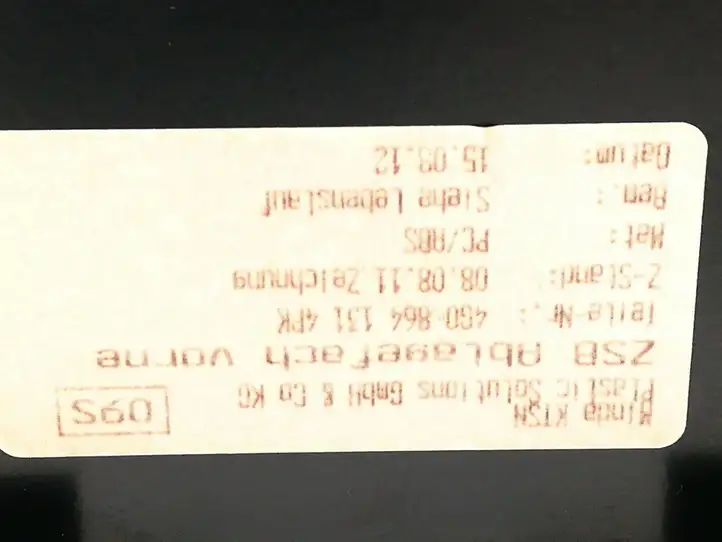 Minda KTSN
Plastic Solutions GmbH & Co KG
09S
ZSB Ablagefach vorne
Teile-Nr.: 4G0 864 131 4PK
Z-Stand: 08.08.11 Zeichnung
Mat: PC/ABS
Bem.: Siehe Lebenslauf
Datum: 15.03.12